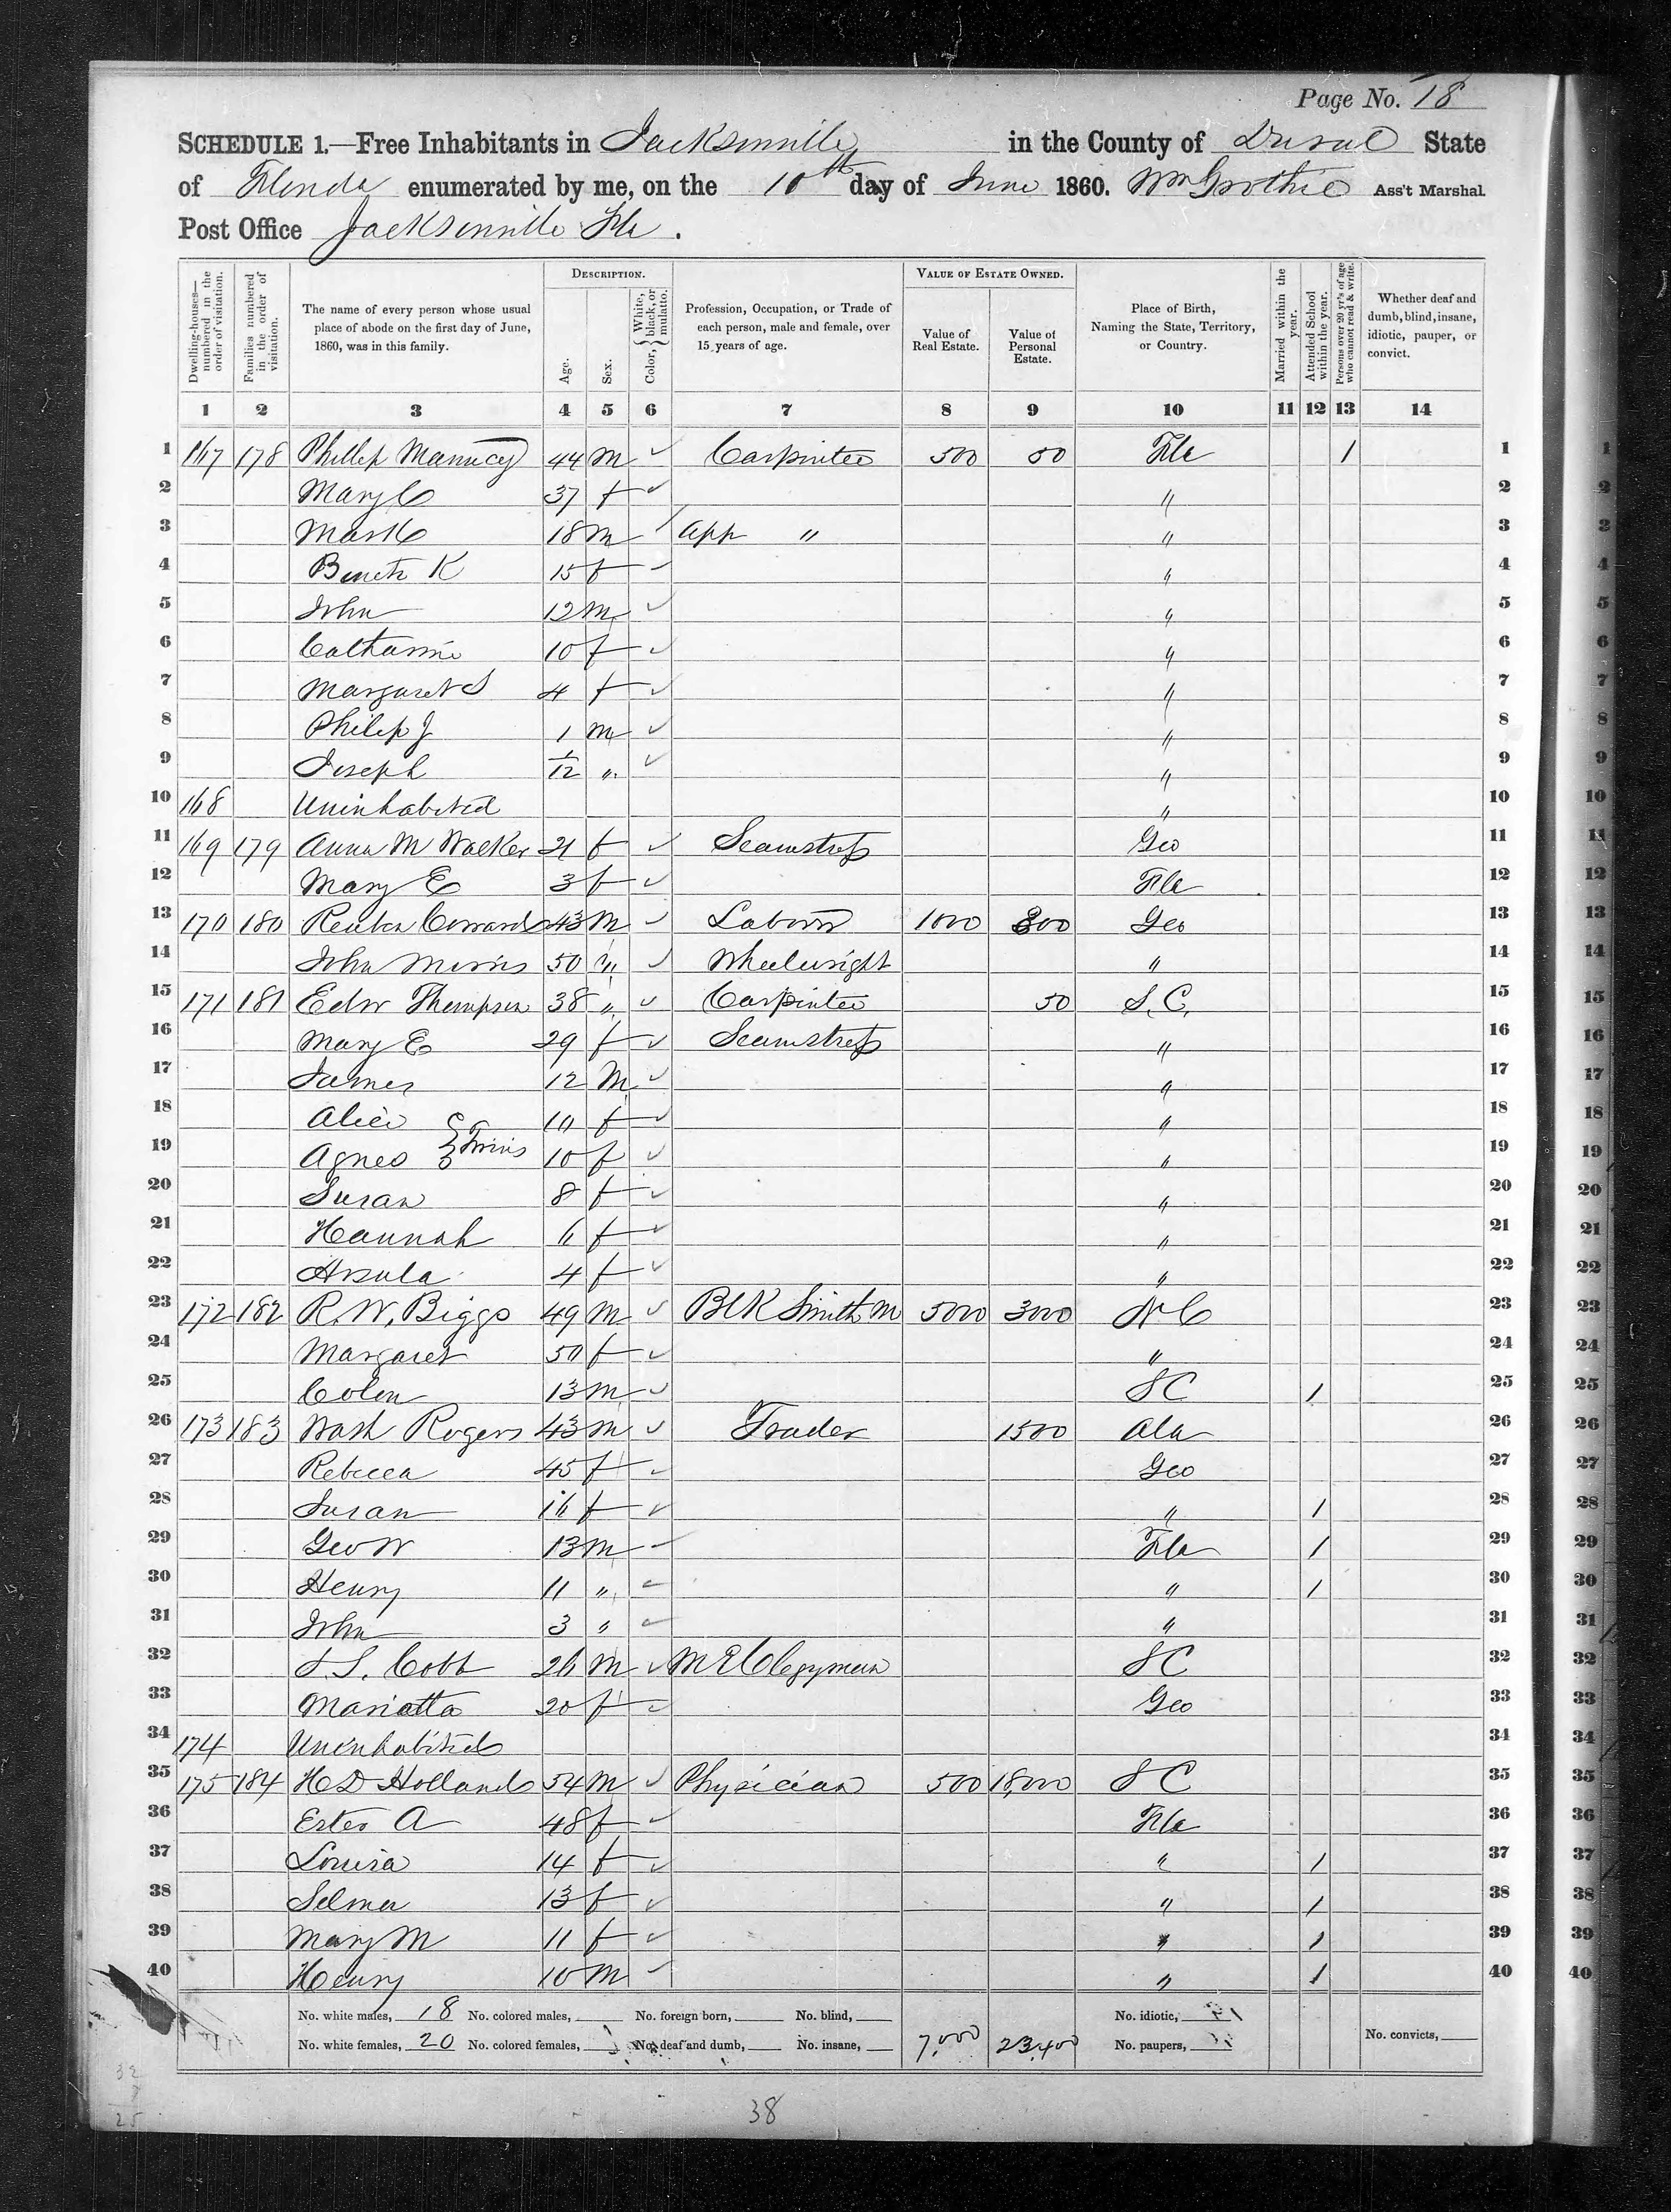 Page No. 18
SCHEDULE 1.—Free Inhabitants in Jacksonville in the County of Duval State
of Florida enumerated by me, on the 10th day of June 1860. Wm Grothie Ass't Marshal
Post Office Jacksonville Fla.
DESCRIPTION. VALUE OF ESTATE OWNED.
Dwelling-houses—numbered in the order of visitation.
Families numbered in the order of visitation.
The name of every person whose usual place of abode on the first day of June, 1860, was in this family.
Age.
Sex.
Color, { White, black, or mulatto.
Profession, Occupation, or Trade of each person, male and female, over 15 years of age.
Value of Real Estate.
Value of Personal Estate.
Place of Birth, Naming the State, Territory, or Country.
Married within the year.
Attended School within the year.
Persons over 20 yr's of age who cannot read & write.
Whether deaf and dumb, blind, insane, idiotic, pauper, or convict.
1 2 3 4 5 6 7 8 9 10 11 12 13 14
1 167 178 Phillip Manucy 44 m ✓ Carpinter 500 50 Fla 1 1
2 Mary C 37 f ✓ " 2
3 18 m / app " " 3
4 15 f ✓ " 4
5 John 12 m ✓ " 5
6 Catharine 10 f ✓ " 6
7 Margaret S 4 f ✓ " 7
8 Philip J 1 m ✓ " 8
9 Joseph 1/12 " ✓ " 9
10 168 Uninhabited " 10
11 169 179 Anna M Walker 21 f ✓ Seamstress Geo 11
12 Mary E 3 f ✓ Fla 12
13 170 180 Reuben 43 m ✓ Laborer 1000 300 Geo 13
14 John Morris 50 " ✓ Wheelwright " 14
15 171 181 Edw Thompson 38 " ✓ Carpinter 50 S.C. 15
16 Mary E 29 f ✓ Seamstress " 16
17 James 12 m ✓ " 17
18 Alice } Twins 10 f ✓ " 18
19 Agnes } 10 f ✓ " 19
20 Susan 8 f ✓ " 20
21 Hannah 6 f ✓ " 21
22 Ursula 4 f ✓ " 22
23 172 182 R. W. Biggs 49 m ✓ Blk Smith M 5000 3000 N C 23
24 Margaret 50 f ✓ " 24
25 Colen 13 m ✓ S C 1 25
26 173 183 Wash Rogers 43 m ✓ Trader 1500 Ala 26
27 Rebecca 45 f ✓ Geo 27
28 Susan 16 f ✓ " 1 28
29 Geo W 13 m ✓ Fla 1 29
30 Henry 11 " ✓ " 1 30
31 John 3 " ✓ " 31
32 Cobb 26 m ✓ M E Clegyman S C 32
33 Mariatta 20 f ✓ Geo 33
34 174 Uninhabited 34
35 175 184 H D Holland 54 m ✓ Physician 500 18,000 S C 35
36 Ester A 48 f ✓ Fla 36
37 Louisa 14 f ✓ " 1 37
38 Selma 13 f ✓ " 1 38
39 Mary M 11 f ✓ " 1 39
40 Henry 10 m ✓ " 1 40
No. white males, 18 No. colored males, No. foreign born, No. blind, No. idiotic,
No. white females, 20 No. colored females, No. deaf and dumb, No. insane, 7,000 23,400 No. paupers, No. convicts,
38
32
25